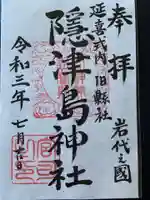 奉拝
岩代之國
延喜式内 旧縣社
隠津島神社
令和三年 七月